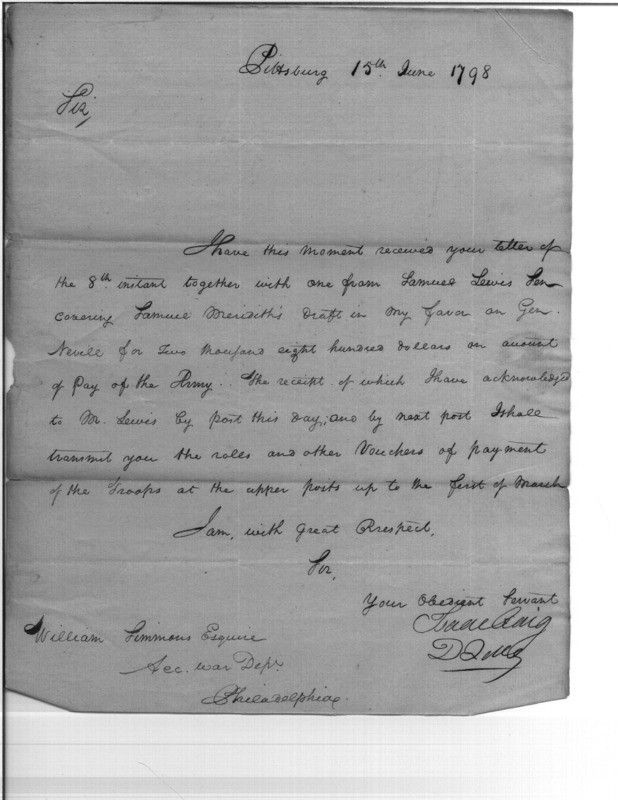 Pittsburg 15th June 1798
Sir,
I have this moment received your letter of
the 8th instant together with one from Samuel Lewis Sen
covering Samuel Meridith's Draft in my favor on Gen.
Nevill for Two thousand eight hundred dollars on amount
of Pay of the Army.. The receipt of which I have acknowledged
to Mr. Lewis by post this day, and by next post I shall
transmit you the rolls and other Vouchers of payment
of the Troops at the upper posts up to the first of March
I am, with great Respect,
Sir,
Your Obedient Servant
Isaac Craig
D Q M G
William Simmons Esquire
Acc. War Dept.
Philadelphia.